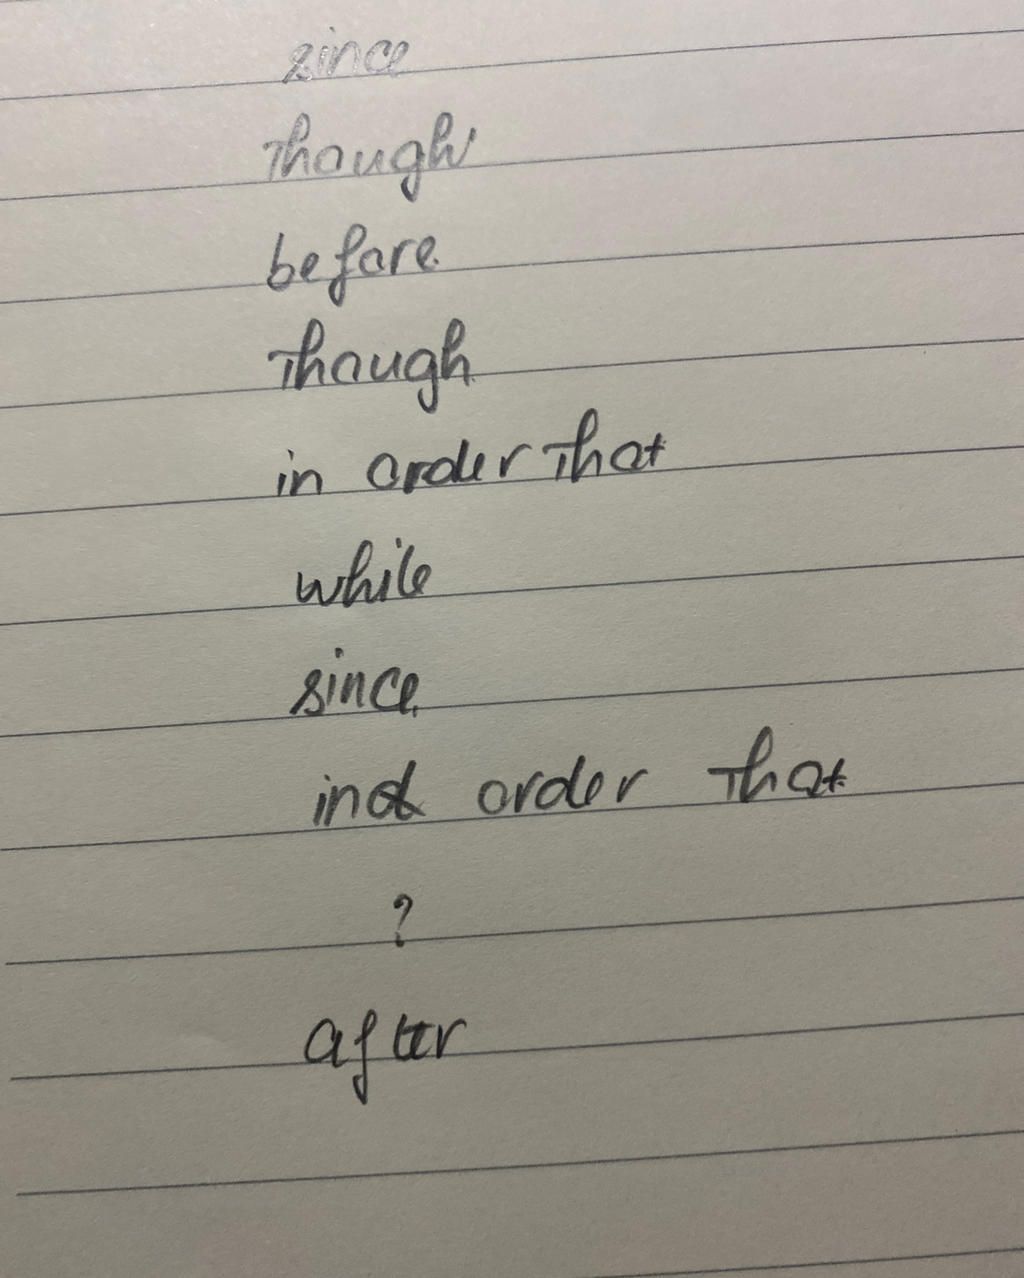 since
Though
before
Though
in order that
while
since
in order that
?
after